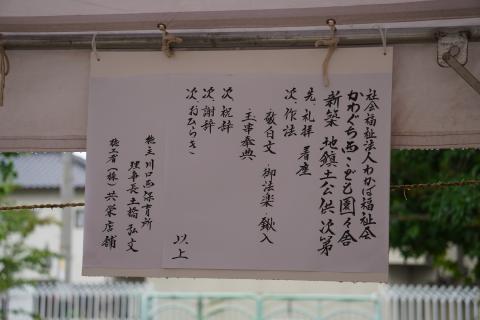 社会福祉法人わかば福祉会
かわぐち西こども園々舎
新築 地鎮土公供次第
先、礼拝 着座
次、作法
・敬白文 ・御法楽 ・鍬入
・玉串奉典
次、祝辞
次、謝辞
次、おひらき
以上
施主 川口西保育所
理事長 土橋 弘文
施工者 (株) 共栄店舗